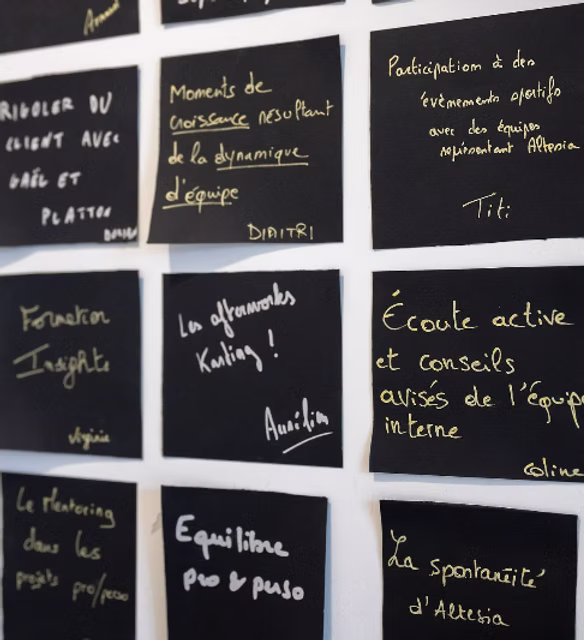 Arnaud
RIGOLER DU
CLIENT AVEC
GAËL ET
Moments de
croissance résultant
de la dynamique
d'équipe
DIMITRI
Participation à des
évènements sportifs
avec des équipes
représentant Altesia
Titi
Formation
Insights
Virginie
Les afterworks
Karting !
Aurélien
Écoute active
et conseils
avisés de l'équipe
interne
Coline
Le Mentoring
dans les
projets pro/perso
Equilibre
pro & perso
La spontanéité
d'Altesia